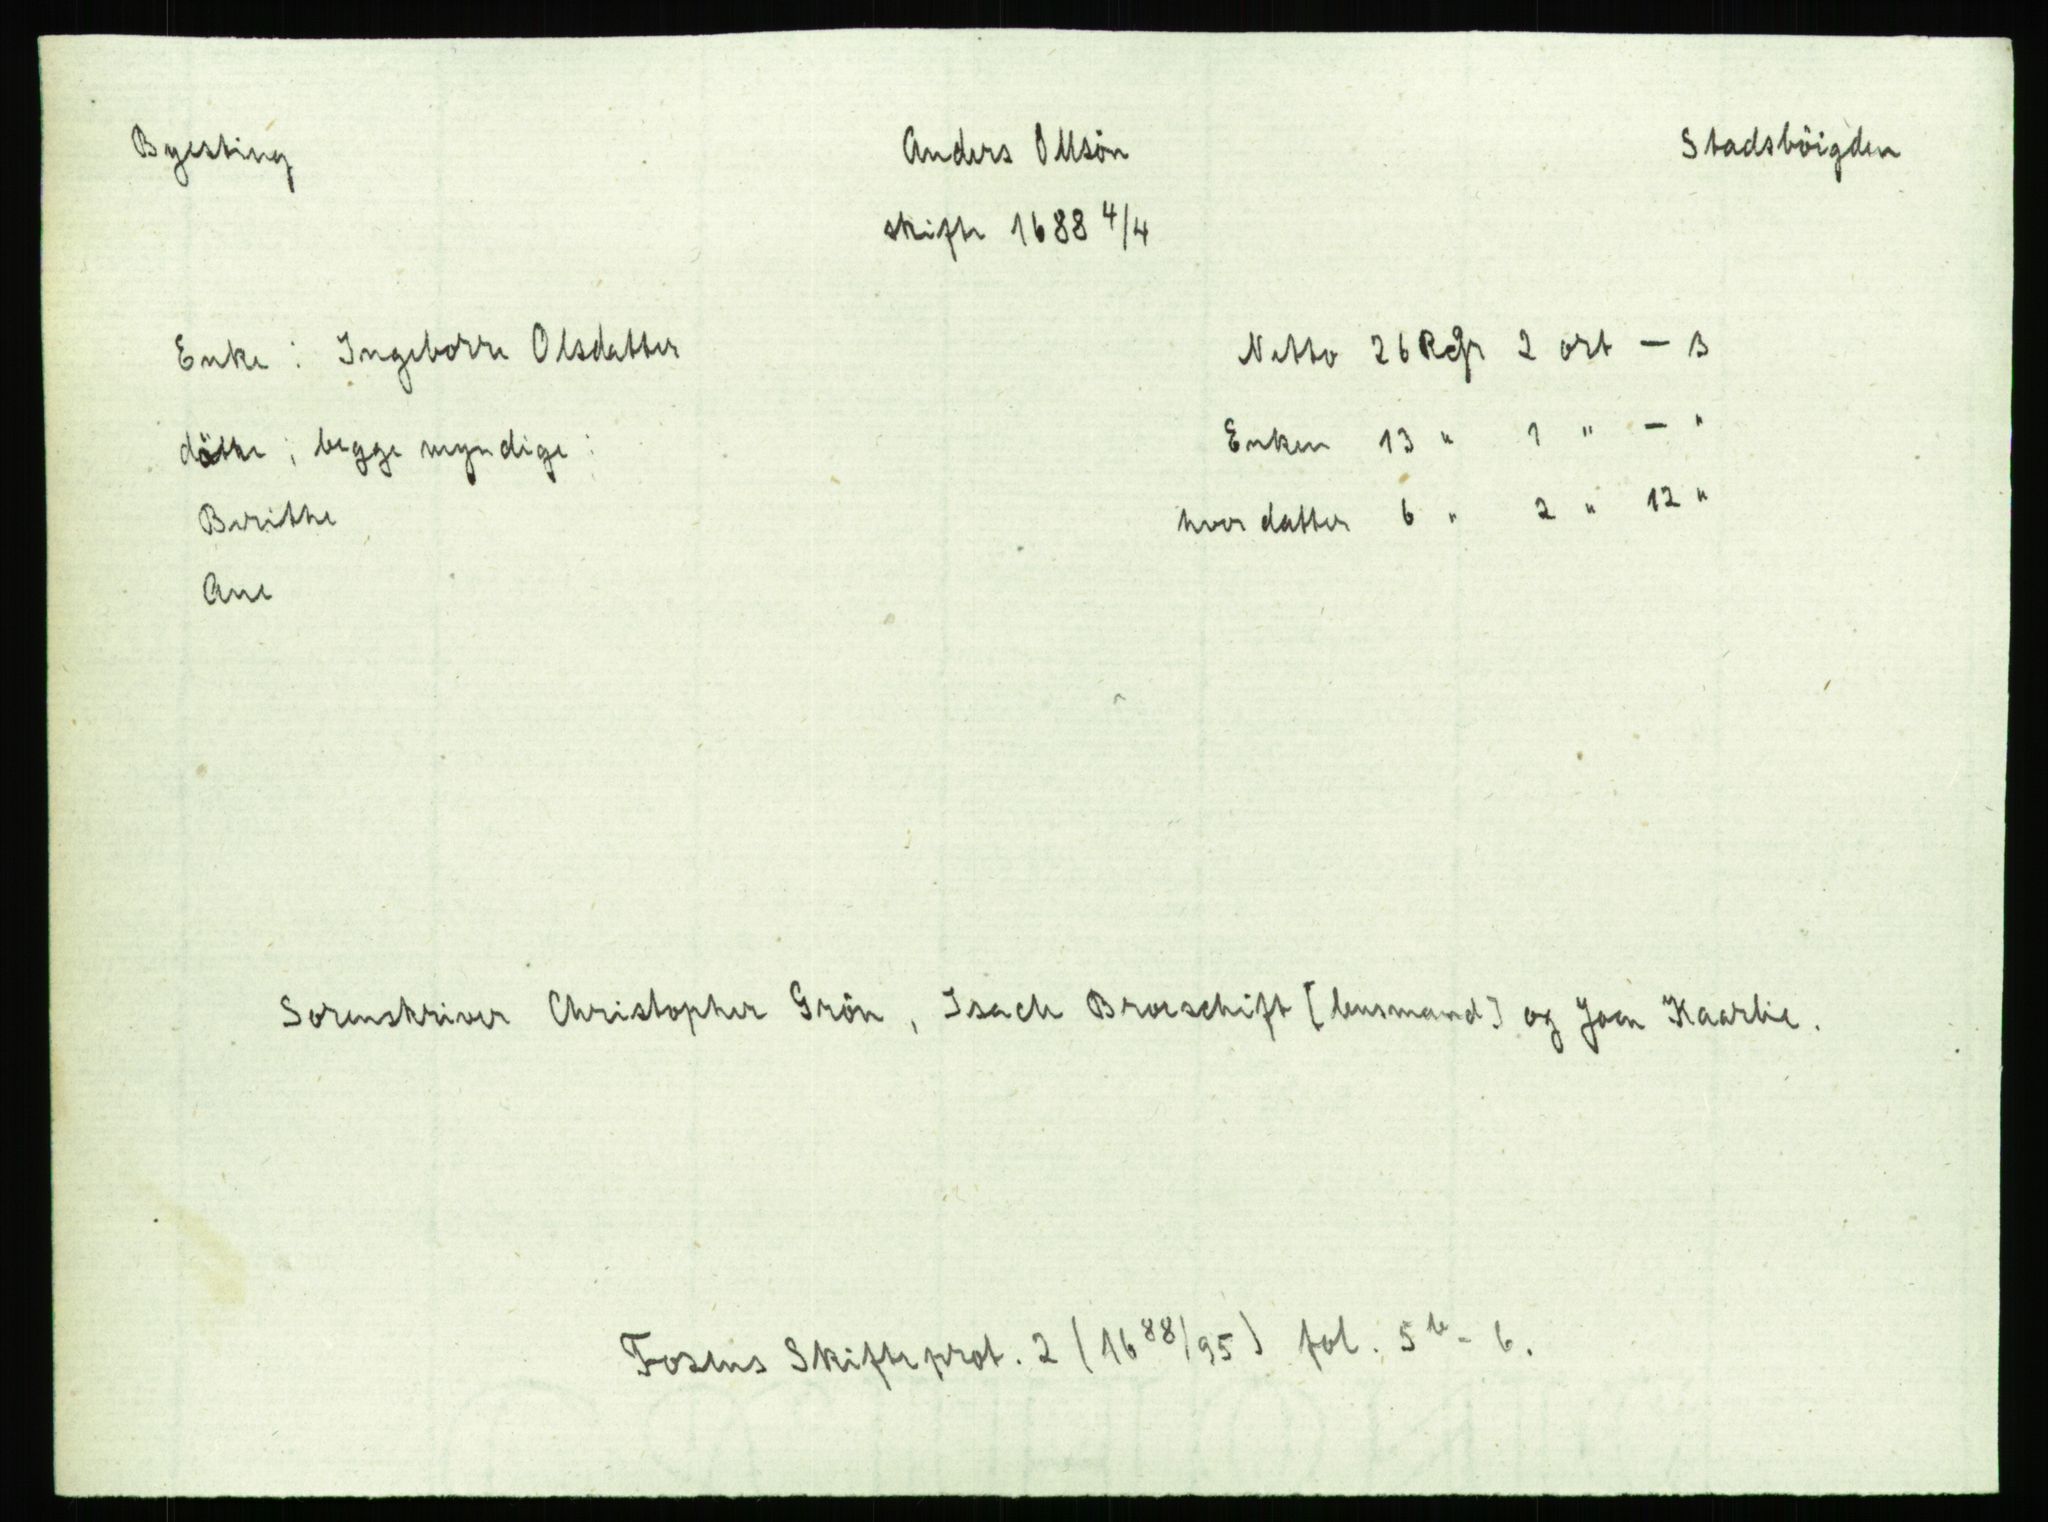 Byesting Anders Ollsön Stadsböigden
skifte 1688 4/4
Enke : Ingeborre Olsdatter Netto 26 Rdr 2 ort — ß
døttre ; begge myndige : Enken 13 " 1 " — "
Berithe hver datter 6 " 2 " 12 "
Ane
Sorenskriver Christopher Grön , Isach Broeschift [lensmand] og Joen Haarlie .
Fosens Skifteprot . 2 ( 16 88/95 ) fol . 5 b - 6 .